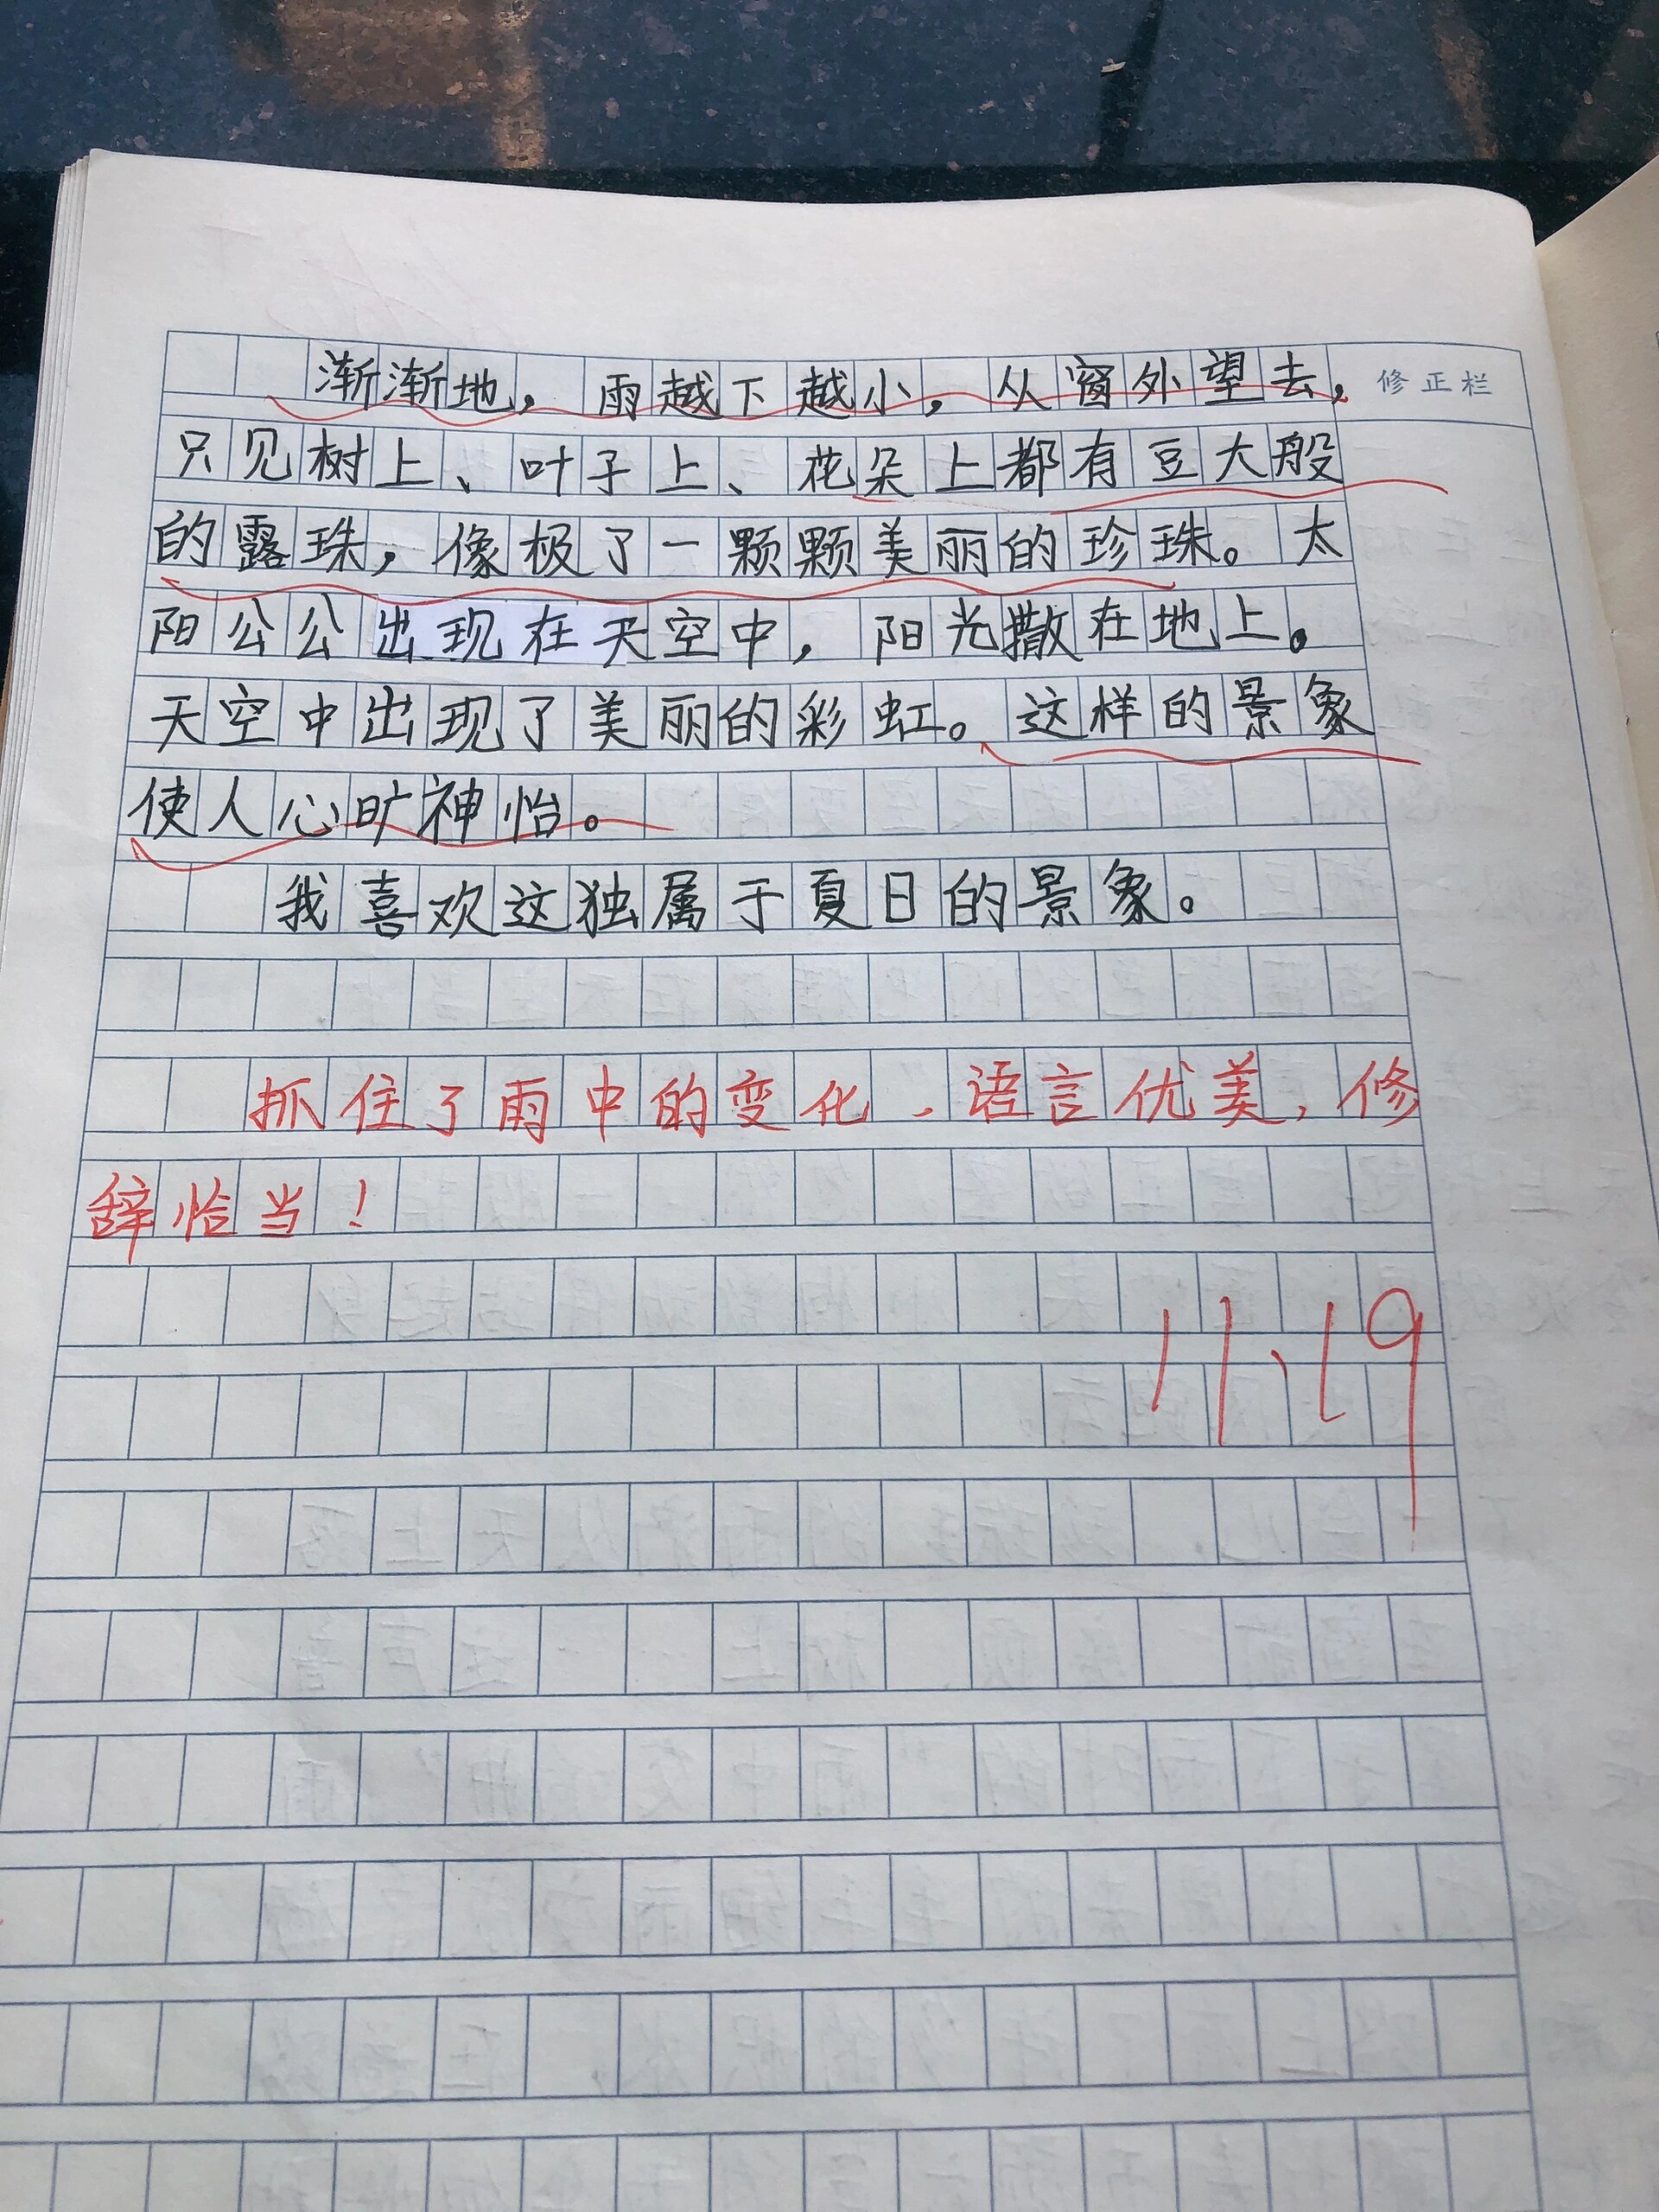 渐渐地，雨越下越小，从窗外望去，
修正栏
只见树上、叶子上、花朵上都有豆大般
的露珠，像极了一颗颗美丽的珍珠。太
阳公公出现在天空中，阳光撒在地上。
天空中出现了美丽的彩虹。这样的景象
使人心旷神怡。
我喜欢这独属于夏日的景象。
抓住了雨中的变化、语言优美，修
辞恰当！
11、19